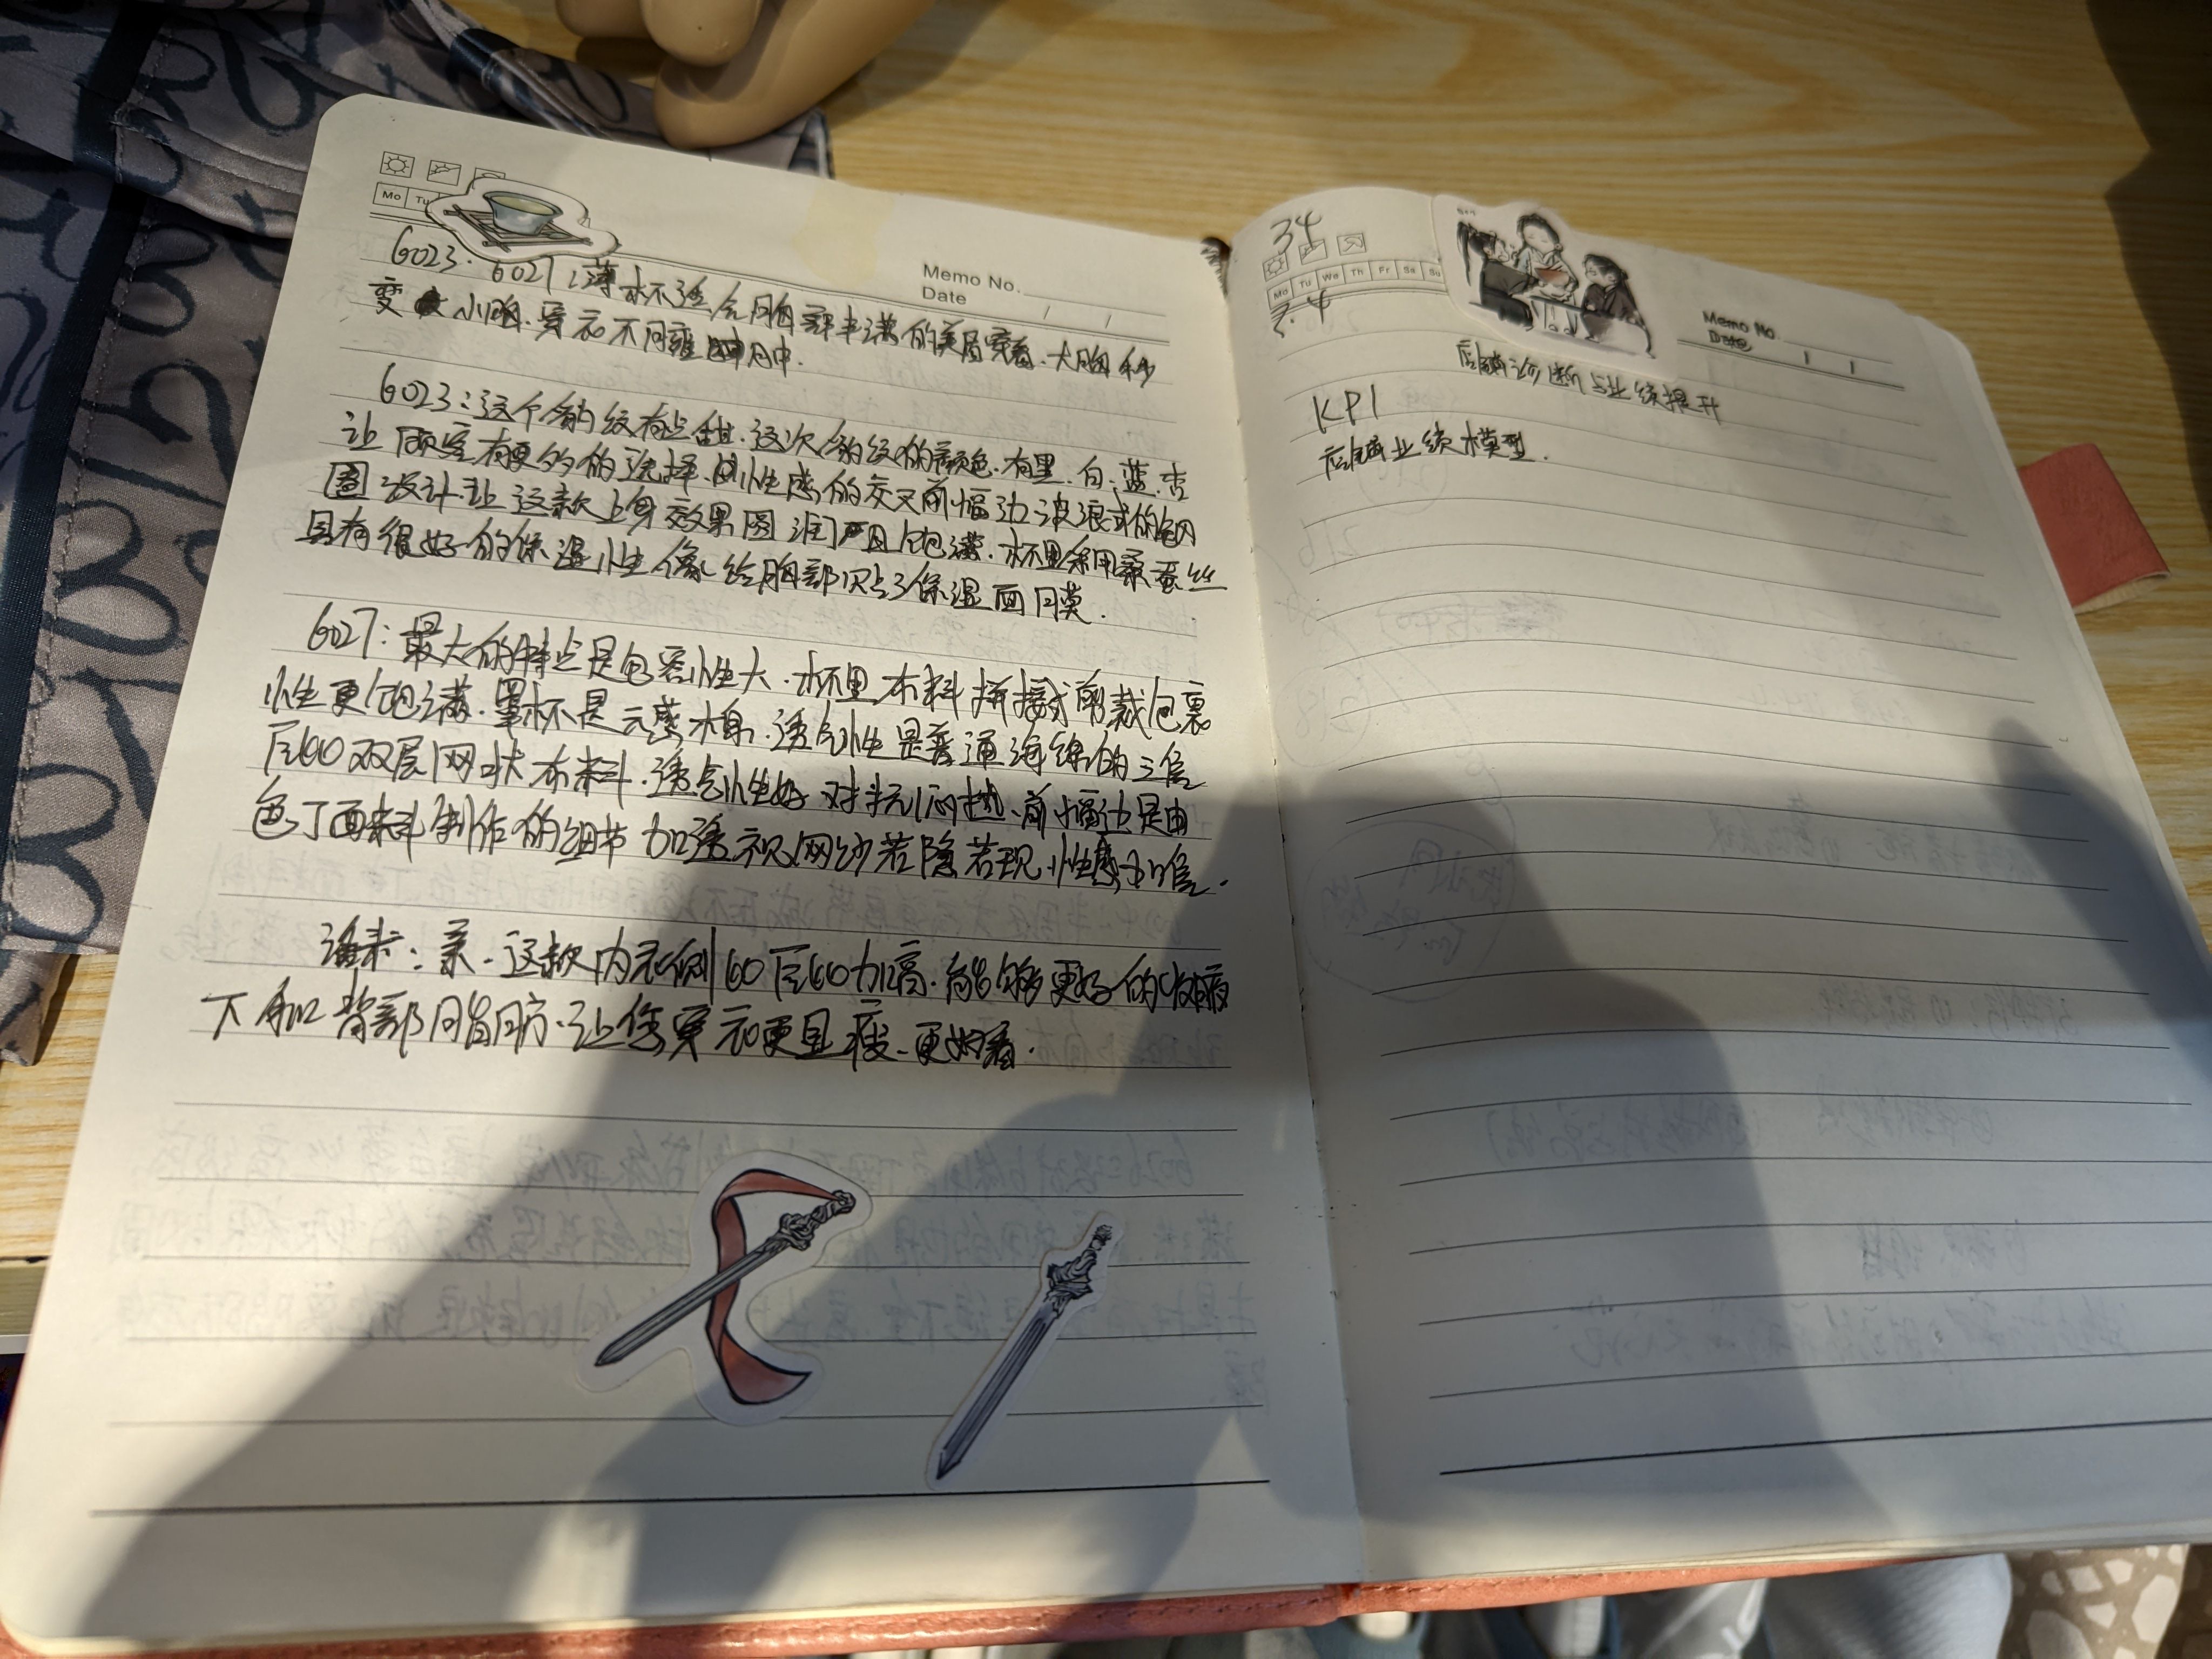 Mo Tu
Memo No.
Date / /
6023. 6027：薄杯不适合胸部丰满的美眉穿着.大胸秒
变小胸.穿衣不用雍肿
6023：这个豹纹有点甜.这次豹纹的颜色.有黑.白.蓝.杏
让顾客有更多的选择.性感的交叉前幅边波浪式的
设计.让这款上身效果圆润且饱满.杯里采用桑蚕丝
具有很好的保湿性像给胸部贴了保湿面膜.
6027：最大的特点是包容性大.杯里布料拼接式剪裁包裹
性更饱满.罩杯是无感水棉.透气性是普通海绵的三倍
后比双层网状布料.透气性好对抗闷热.前幅边是由
色丁面料制作的细节加透视网纱若隐若现.性感加倍.
话术：亲.这款内衣侧比后比加高.能够更好的收腋
下和背部脂肪.让您穿衣更显瘦.更好看.
34
Mo Tu We Th Fr Sa Su
3.4
Memo No.
Date / /
店铺诊断与业绩提升
KPI
店铺业绩模型.